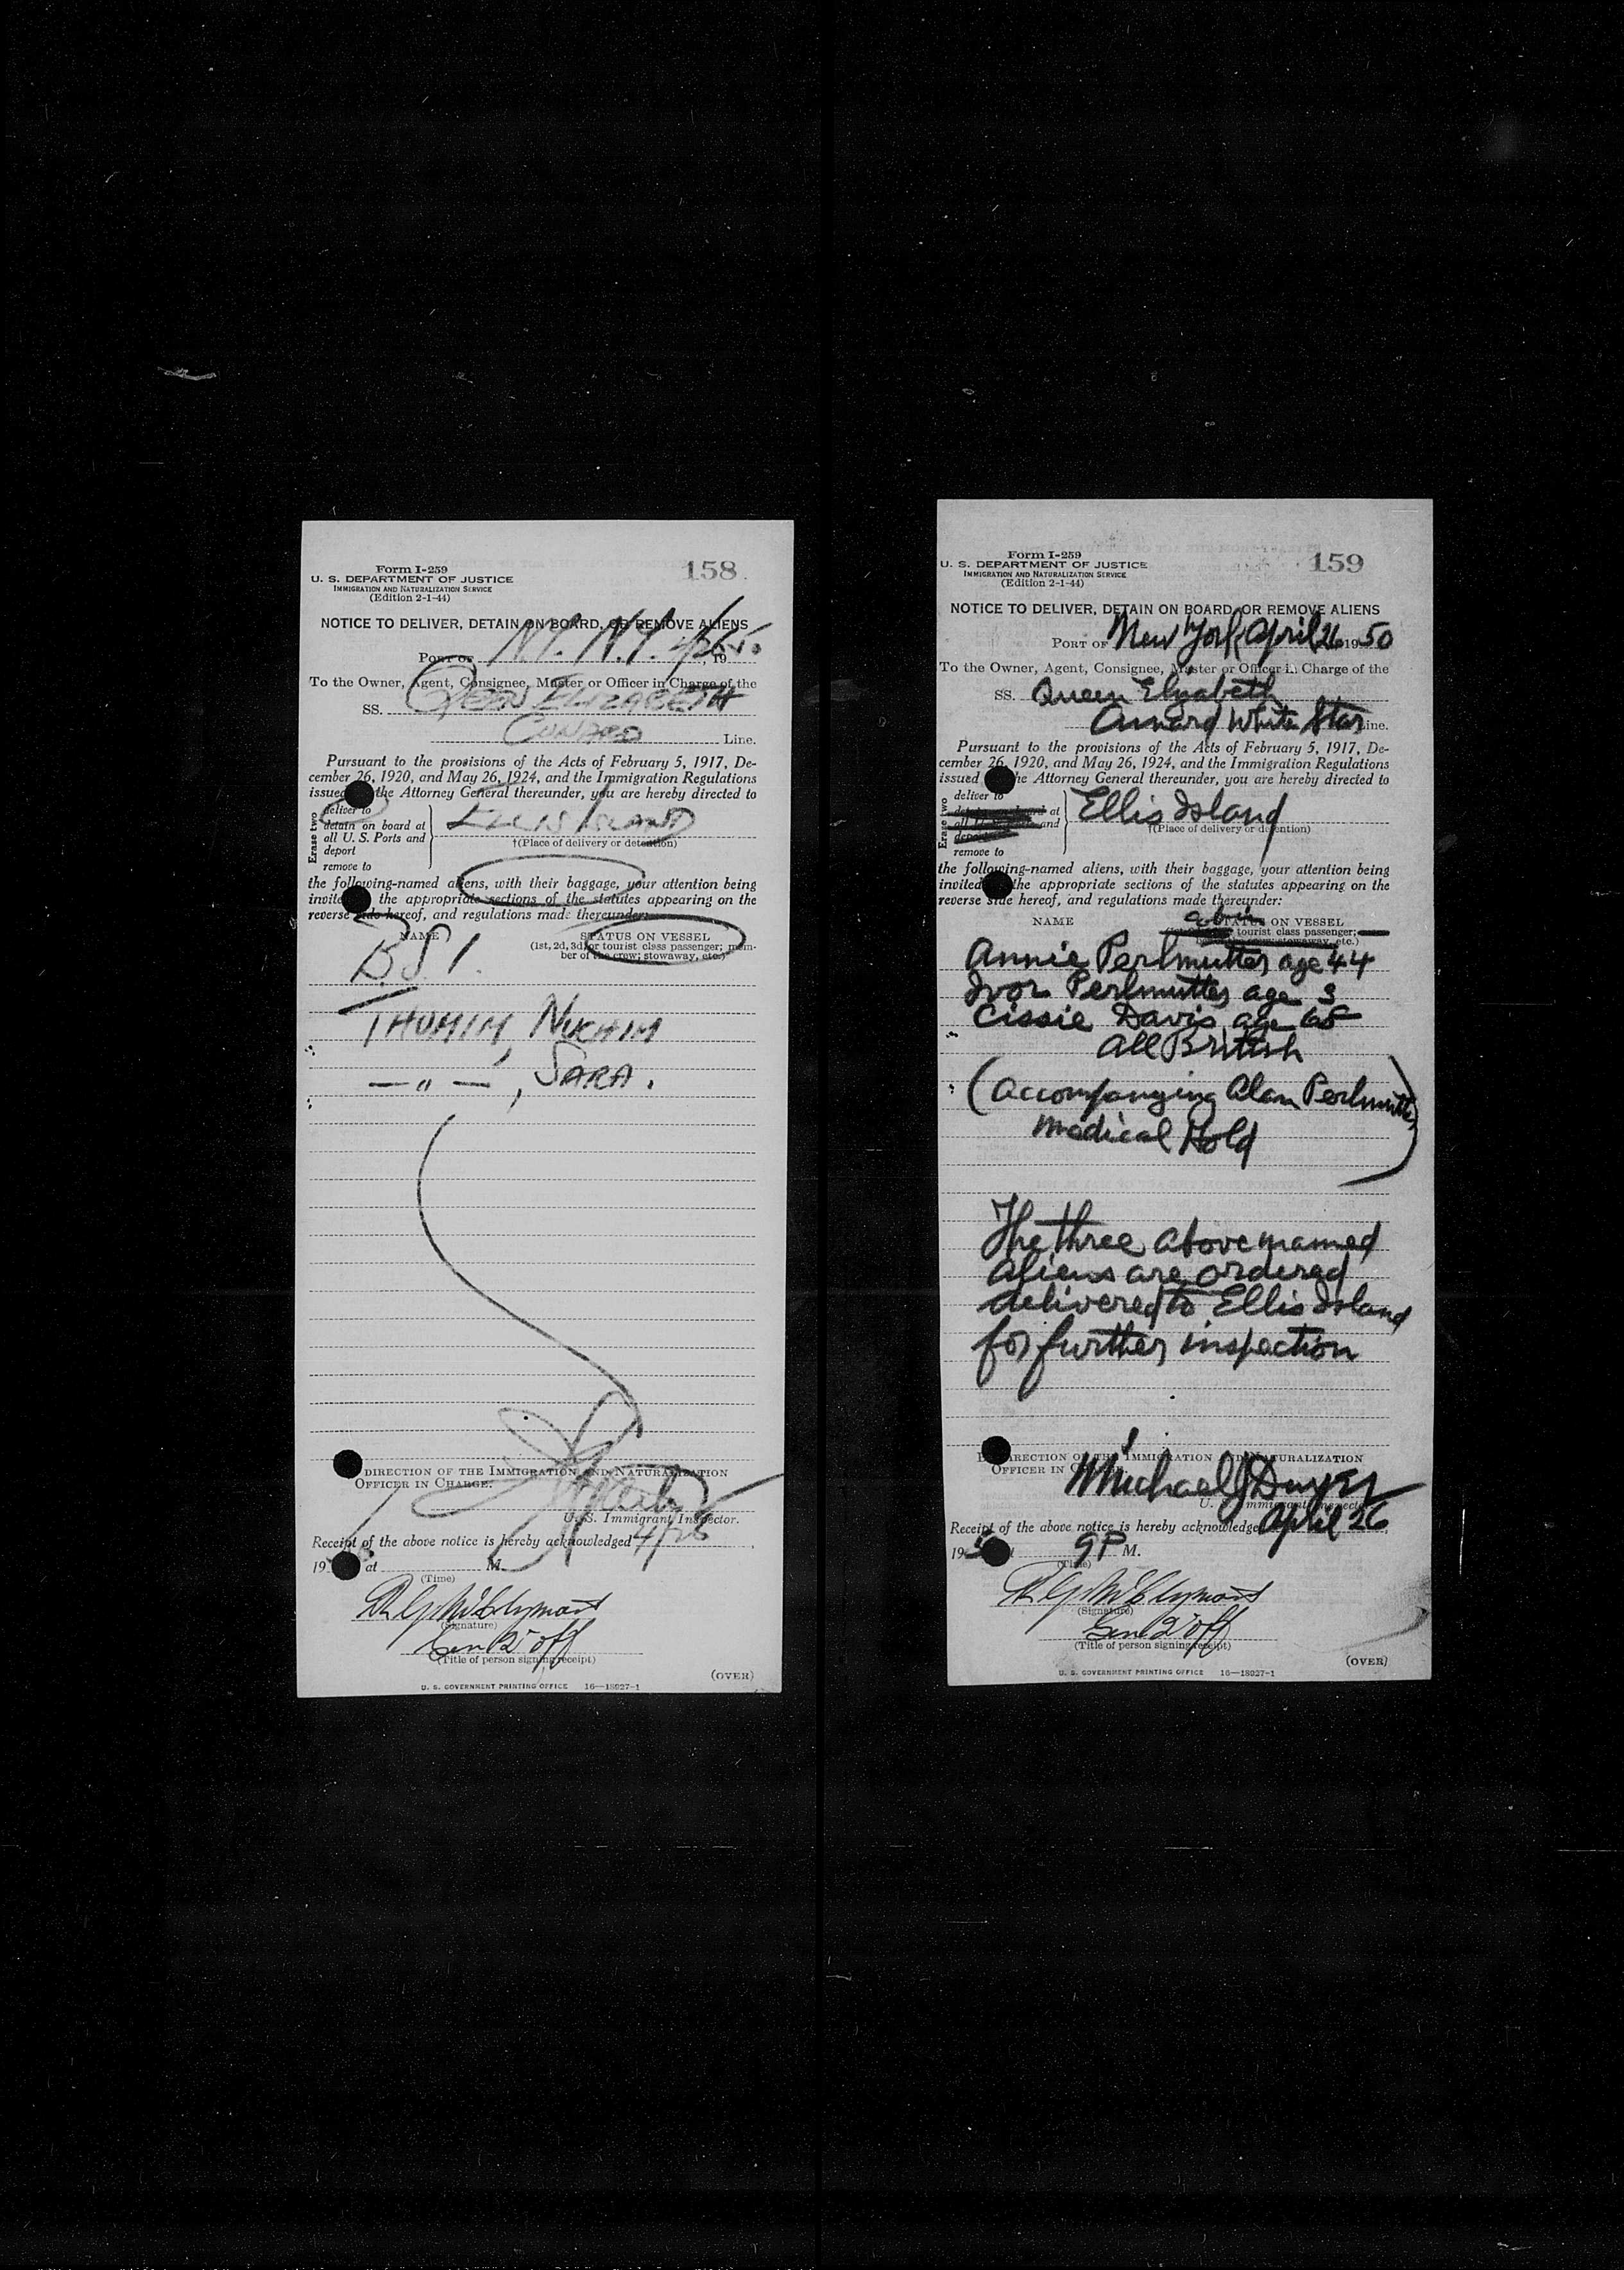 Form I-259
U. S. DEPARTMENT OF JUSTICE
IMMIGRATION AND NATURALIZATION SERVICE
(Edition 2-1-44)
158
NOTICE TO DELIVER, DETAIN ON BOARD, OR REMOVE ALIENS
PORT OF N.Y. N.Y. 4/26/50, 19
To the Owner, Agent, Consignee, Master or Officer in Charge of the
SS. QUEEN ELIZABETH
CUNARD Line.
Pursuant to the provisions of the Acts of February 5, 1917, De-
cember 26, 1920, and May 26, 1924, and the Immigration Regulations
issued the Attorney General thereunder, you are hereby directed to
Erase two
deliver to
detain on board at
all U. S. Ports and
deport
remove to
ELLIS ISLAND
†(Place of delivery or detention)
the following-named aliens, with their baggage, your attention being
invited the appropriate sections of the statutes appearing on the
reverse side hereof, and regulations made thereunder:
NAME STATUS ON VESSEL
(1st, 2d, 3d, or tourist class passenger; mem-
ber of the crew; stowaway, etc.)
B.S.I.
THUMIM, NUCHIM
—"—, SARA.
DIRECTION OF THE IMMIGRATION AND NATURALIZATION
OFFICER IN CHARGE.
U. S. Immigrant Inspector.
Receipt of the above notice is hereby acknowledged 4/26
19 at M.
(Time)
(Signature)
Gen 2° off
(Title of person signing receipt)
(OVER)
U. S. GOVERNMENT PRINTING OFFICE 16—18927-1
Form I-259
U. S. DEPARTMENT OF JUSTICE
IMMIGRATION AND NATURALIZATION SERVICE
(Edition 2-1-44)
159
NOTICE TO DELIVER, DETAIN ON BOARD, OR REMOVE ALIENS
PORT OF New York, April 26 1950
To the Owner, Agent, Consignee, Master or Officer in Charge of the
SS. Queen Elizabeth
Cunard White Star Line.
Pursuant to the provisions of the Acts of February 5, 1917, De-
cember 26, 1920, and May 26, 1924, and the Immigration Regulations
issued the Attorney General thereunder, you are hereby directed to
Erase two
deliver to
detain on board at
all U. S. Ports and
deport
remove to
Ellis Island
†(Place of delivery or detention)
the following-named aliens, with their baggage, your attention being
invited the appropriate sections of the statutes appearing on the
reverse side hereof, and regulations made thereunder:
cabin
NAME STATUS ON VESSEL
tourist class passenger;
stowaway, etc.)
Annie Perlmutter age 44
Ivor Perlmutter age 3
Cissie Davis age 68
All British
(Accompanying Alan Perlmutter
Medical Hold)
The three above named
aliens are ordered
delivered to Ellis Island
for further inspection
DIRECTION OF THE IMMIGRATION AND NATURALIZATION
OFFICER IN CHARGE.
Michael J Dwyer
U. S. Immigrant Inspector.
Receipt of the above notice is hereby acknowledged April 26
195 9 P M.
(Time)
(Signature)
Gen 2° off
(Title of person signing receipt)
(OVER)
U. S. GOVERNMENT PRINTING OFFICE 16—18927-1